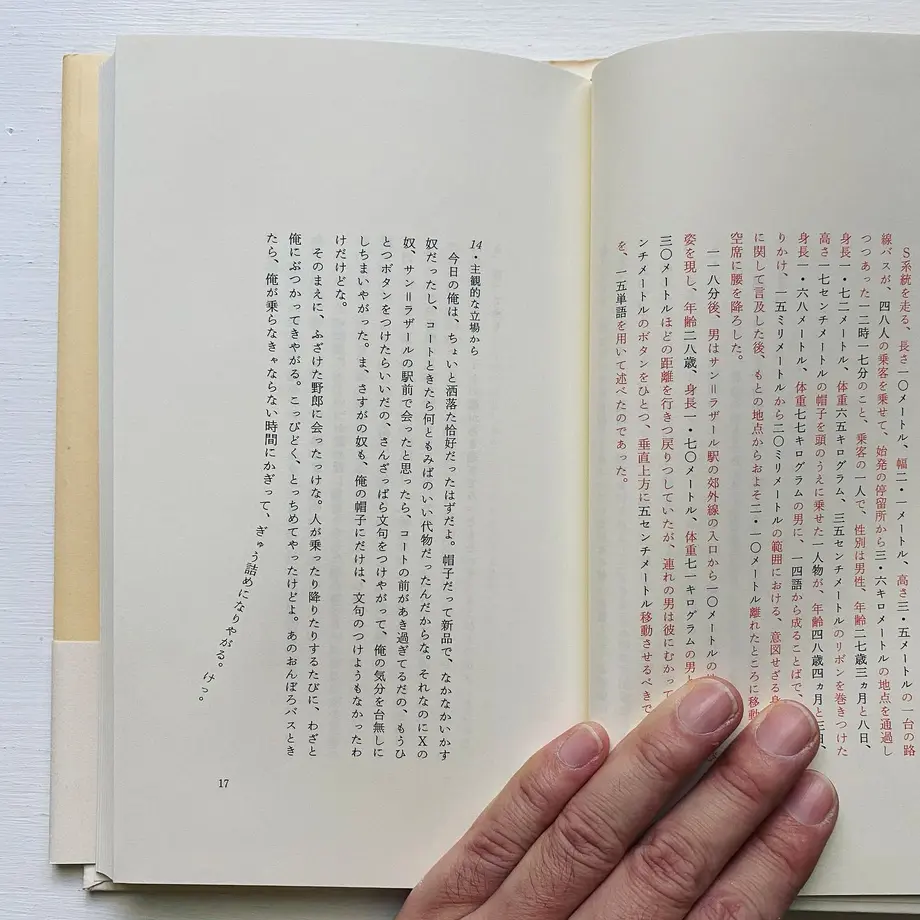 S系統を走る、長さ一〇メートル、幅二・一メートル、高さ三・五メートルの一台の路
線バスが、四八人の乗客を乗せて、始発の停留所から三・六キロメートルの地点を通過し
つつあった一二時一七分のこと、乗客の一人で、性別は男性、年齢二七歳三ヵ月と八日、
身長一・七二メートル、体重六五キログラム、三五センチメートルのリボンを巻きつけた
高さ一七センチメートルの帽子を頭のうえに乗せた一人物が、年齢四八歳四ヵ月と三日、
身長一・六八メートル、体重七七キログラムの男に、一四語から成ることばで、
りかけ、一五ミリメートルから二〇ミリメートルの範囲における、意図せざる身
に関して言及した後、もとの地点からおよそ二・一〇メートル離れたところに移動
空席に腰を降ろした。
一一八分後、男はサン＝ラザール駅の郊外線の入口から一〇メートルの
姿を現し、年齢二八歳、身長一・七〇メートル、体重七一キログラムの男
三〇メートルほどの距離を行きつ戻りつしていたが、連れの男は彼にむかって
ンチメートルのボタンをひとつ、垂直上方に五センチメートル移動させるべきで
を、一五単語を用いて述べたのであった。
14・主観的な立場から
今日の俺は、ちょいと洒落た恰好だったはずだよ。帽子だって新品で、なかなかいかす
奴だったし、コートときたら何ともみばのいい代物だったんだからな。それなのにXの
奴、サン＝ラザールの駅前で会ったと思ったら、コートの前があき過ぎてるだの、もうひ
とつボタンをつけたらいいだの、さんざっぱら文句をつけやがって、俺の気分を台無しに
しちまいやがった。ま、さすがの奴も、俺の帽子にだけは、文句のつけようもなかったわ
けだけどな。
そのまえに、ふざけた野郎に会ったっけな。人が乗ったり降りたりするたびに、わざと
俺にぶつかってきやがる。こっぴどく、とっちめてやったけどよ。あのおんぼろバスとき
たら、俺が乗らなきゃならない時間にかぎって、ぎゅう詰めになりやがる。けっ。
17